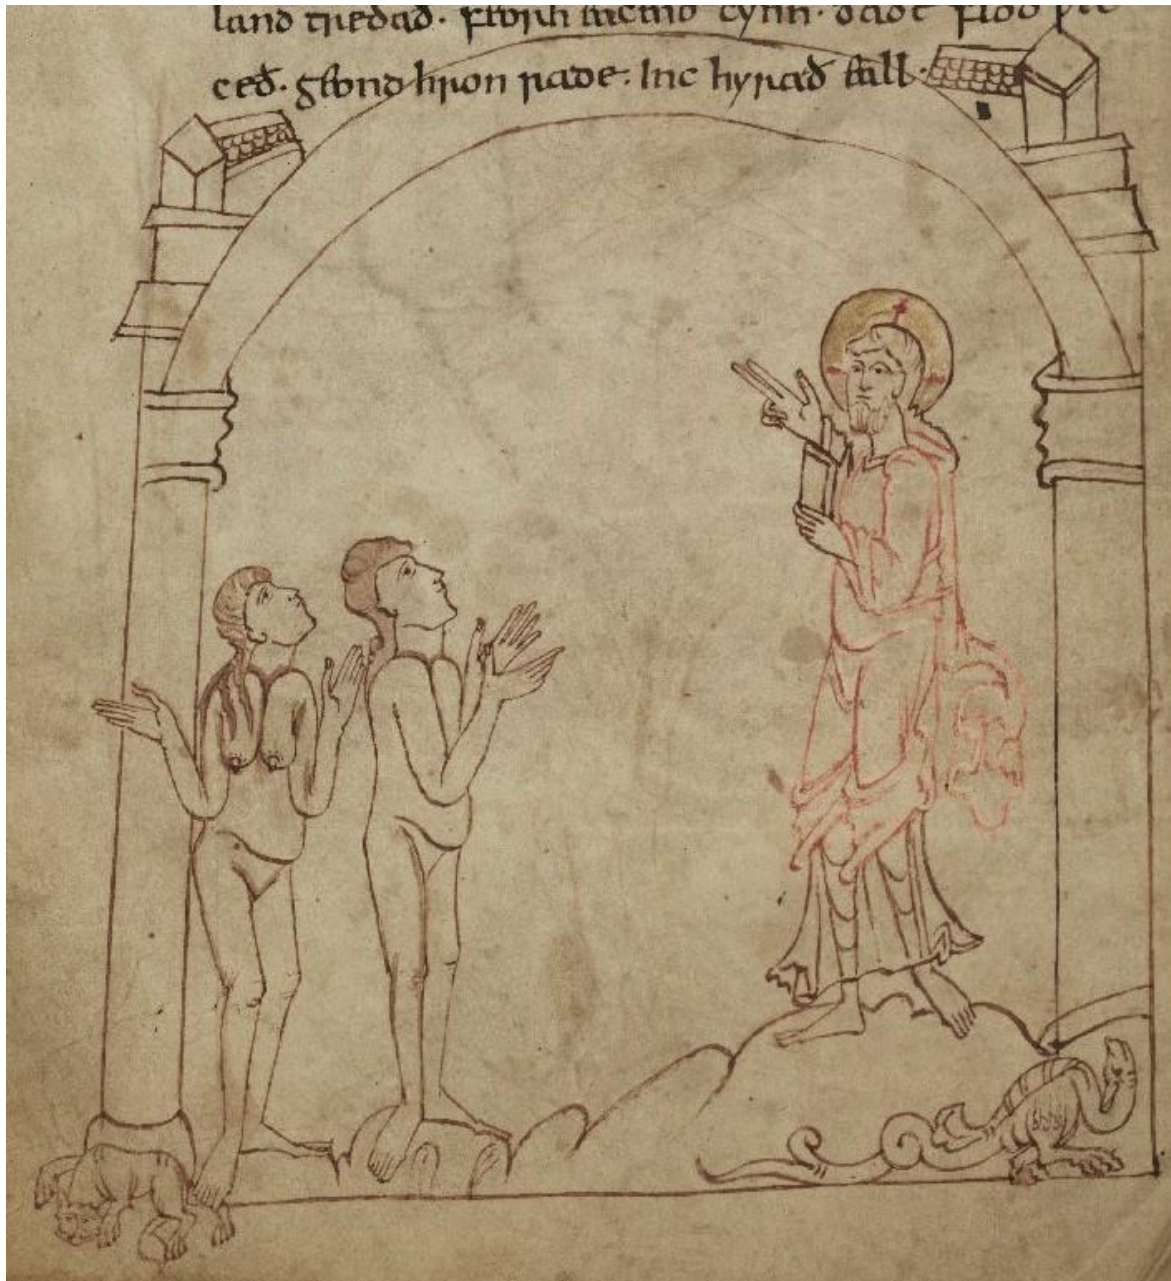 land tredað· feorh eaceno cynn· ðaðe flod wec
ceð· geond hron rade: Inc hyrað eall·